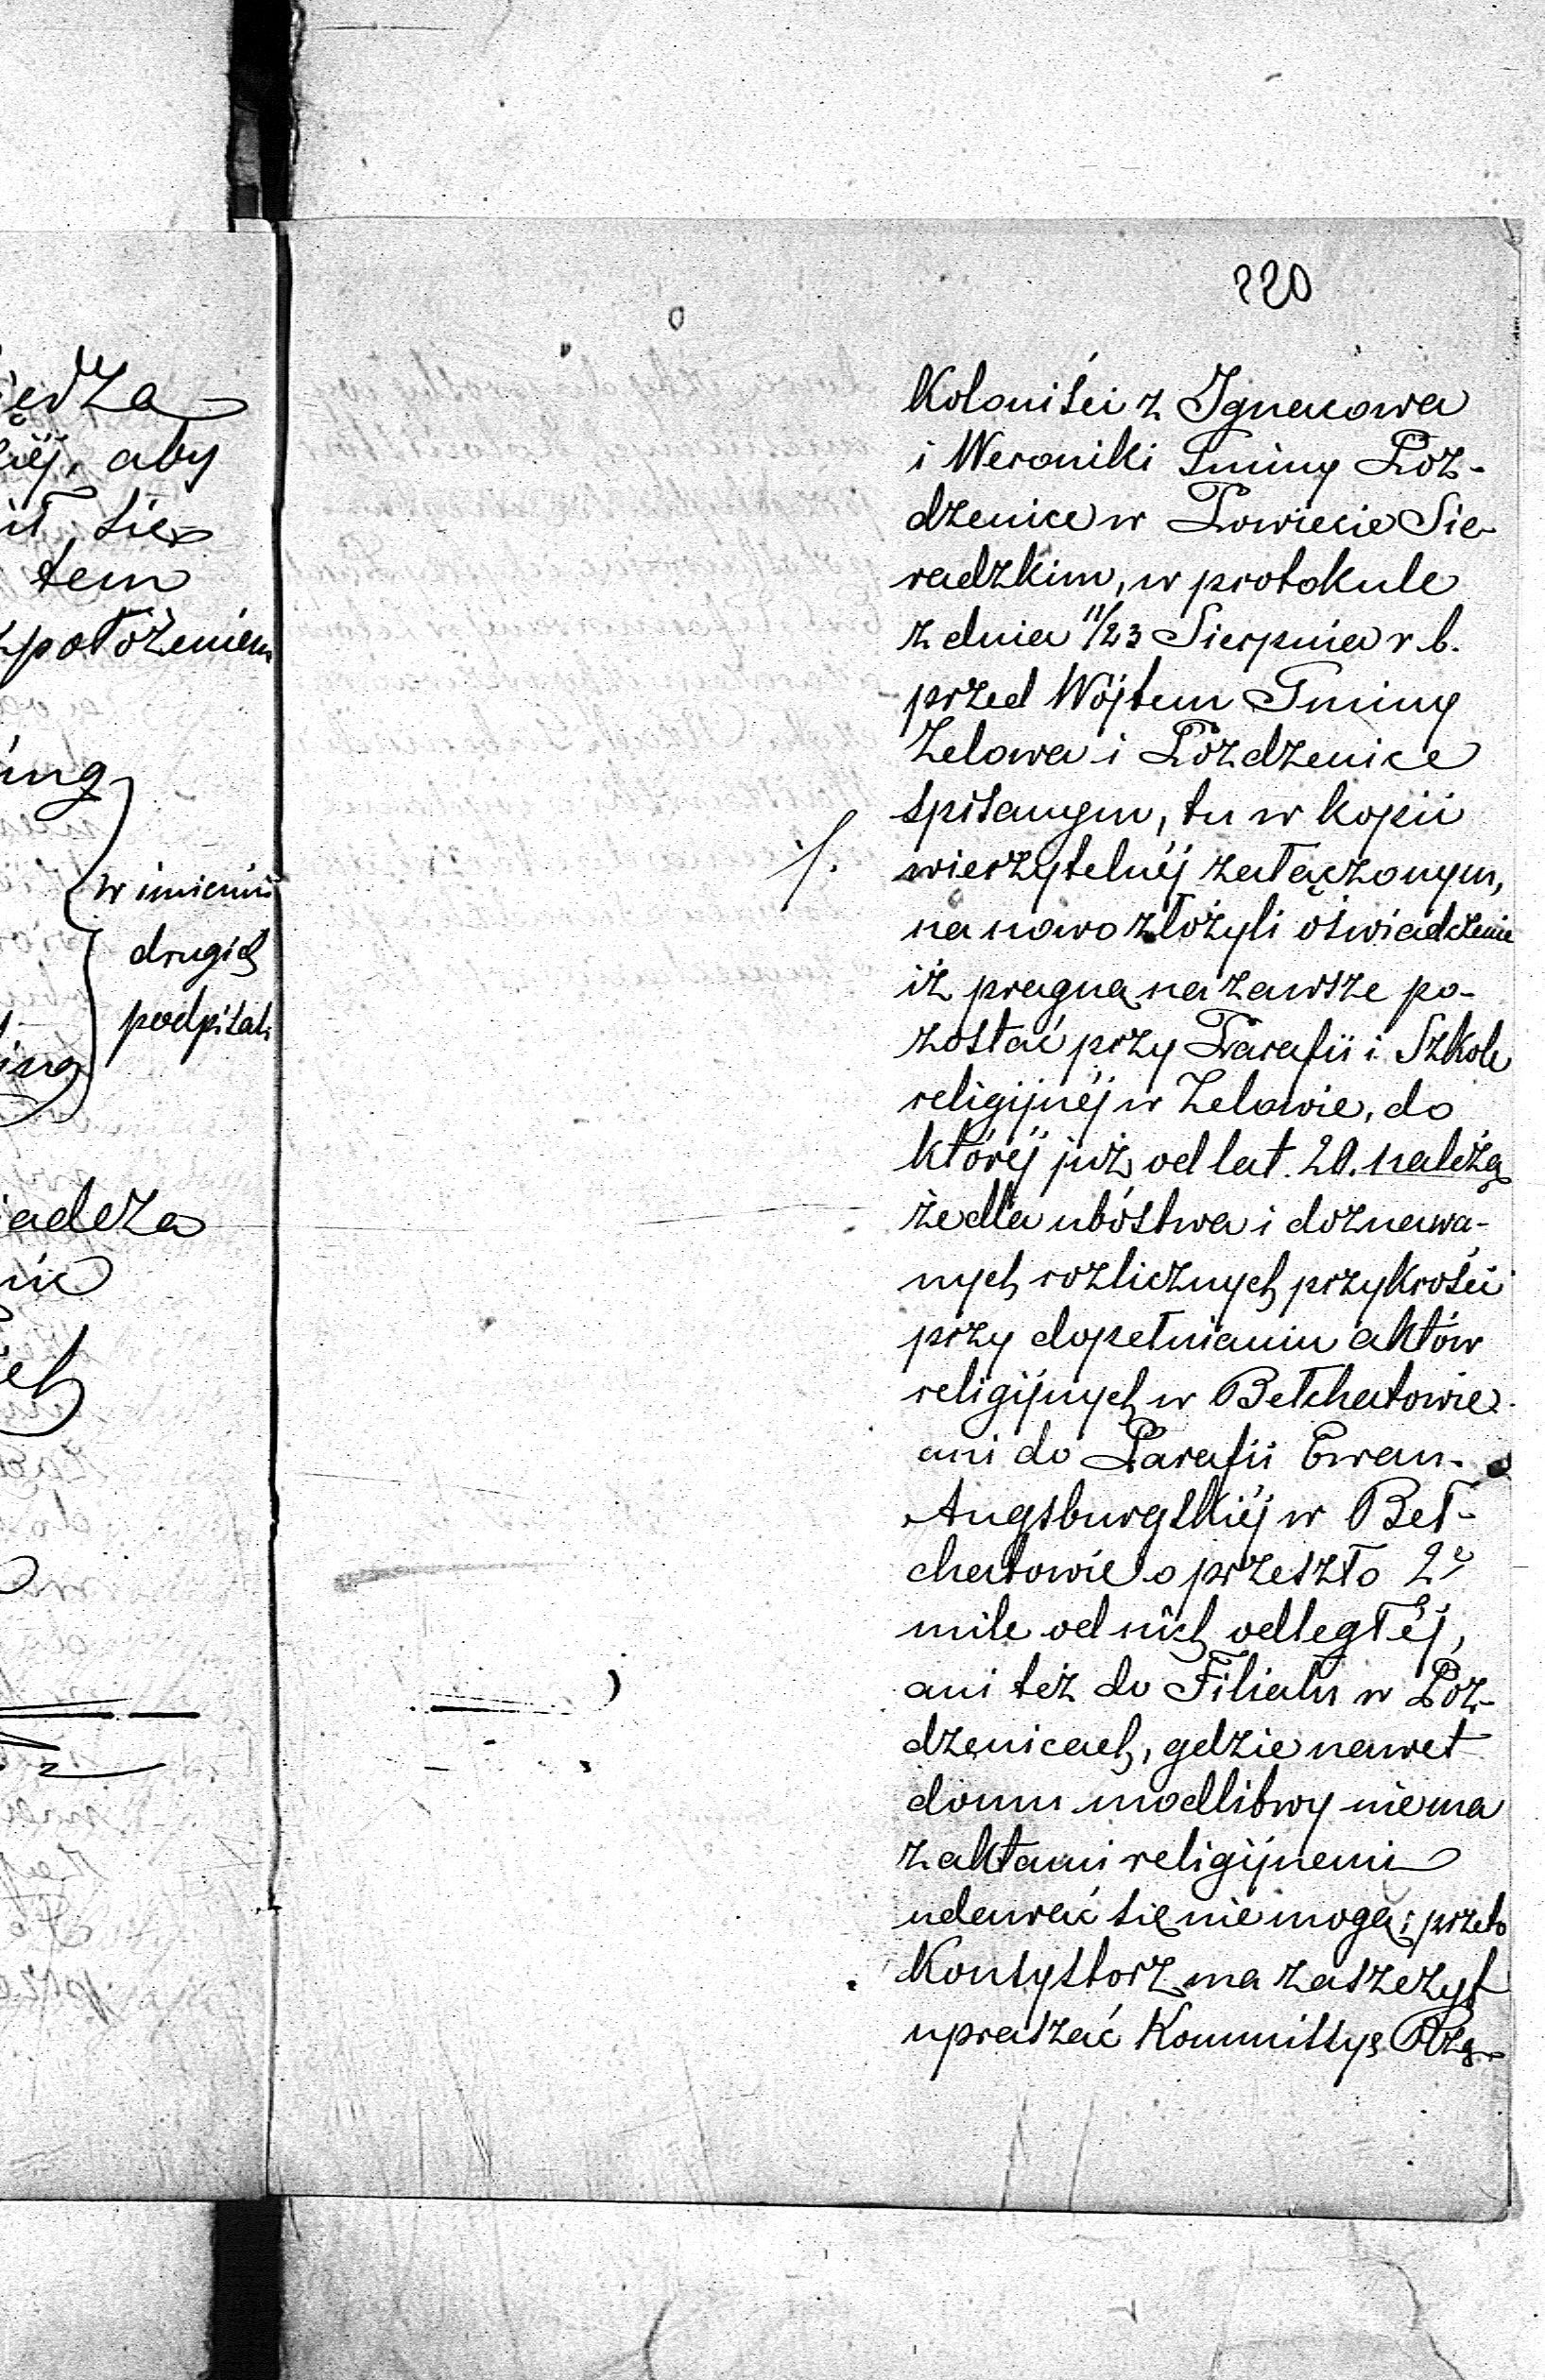 220
Koloniści z Ignacowa
i Weroniki Gminy Poż-
dżenice w Powiecie Sie-
radzkim, w protokule
z dnia 11/23 Sierpnia r. b.
przed Wójtem Gminy
Zelowa i Pożdżenice
spisanym, tu w kopii
/. wierzytelnéj załączonym,
na nowo złożyli oświadczenie
iż pragną na zawsze po-
zostać przy Parafii i Szkole
religijnéj w Zelowie, do
któréj już od lat 20. należą
że dla ubóstwa i doznawa-
nych rozlicznych przykrości
przy dopełnianiu aktów
religijnych w Bełchatowie
ani do Parafii Ewan-
Augsburgskiéj w Beł-
chatowie o przeszło 2e
mile od nich odległéj,
ani też do Filiału w Poż-
dżenicach, gdzie nawet
domu modlitwy niema
z aktami religijnemi
udawać się nie mogą; przeto
Konsystorz ma zaszczyt
upraszać Kommissyę Rzą-
aby
się
tem
położeniem
w imieniu
drugich
podpisali